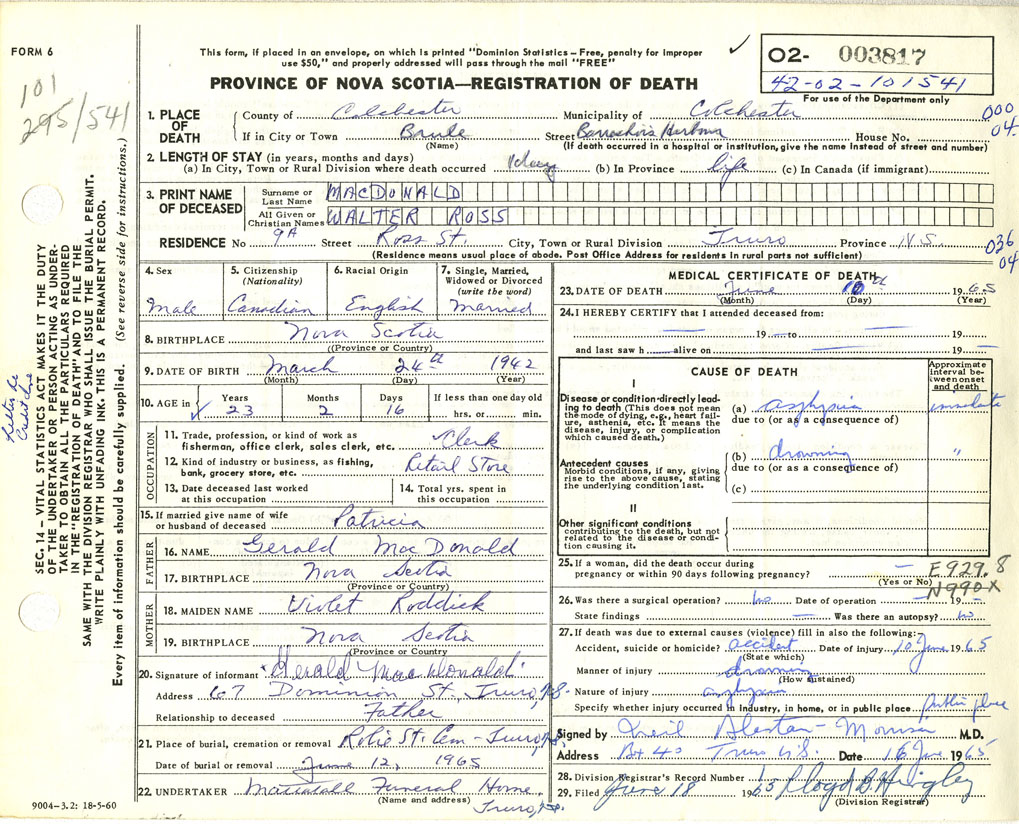 FORM 6
This form, if placed in an envelope, on which is printed "Dominion Statistics – Free, penalty for improper
use $50," and properly addressed will pass through the mail "FREE"
PROVINCE OF NOVA SCOTIA—REGISTRATION OF DEATH
02- 003817
42-02-101541
For use of the Department only
101
295/541
000
04
1. PLACE OF DEATH
County of Colchester Municipality of Colchester
If in City or Town Brule Street House No.
(Name) (If death occurred in a hospital or institution, give the name instead of street and number)
2. LENGTH OF STAY (in years, months and days)
(a) In City, Town or Rural Division where death occurred 1 day (b) In Province life (c) In Canada (if immigrant)
3. PRINT NAME OF DECEASED
Surname or Last Name MACDONALD
All Given or Christian Names WALTER ROSS
RESIDENCE No 9A Street Ross St. City, Town or Rural Division Truro Province N.S.
(Residence means usual place of abode. Post Office Address for residents in rural parts not sufficient)
036
04
4. Sex
Male
5. Citizenship
(Nationality)
Canadian
6. Racial Origin
English
7. Single, Married, Widowed or Divorced
(write the word)
Married
8. BIRTHPLACE Nova Scotia
(Province or Country)
9. DATE OF BIRTH March 24th 1942
(Month) (Day) (Year)
10. AGE in
Years Months Days If less than one day old
23 2 16 hrs. or min.
OCCUPATION
11. Trade, profession, or kind of work as
fisherman, office clerk, sales clerk, etc. Clerk
12. Kind of industry or business, as fishing,
bank, grocery store, etc. Retail Store
13. Date deceased last worked
at this occupation
14. Total yrs. spent in
this occupation
15. If married give name of wife
or husband of deceased Patricia
FATHER
16. NAME Gerald MacDonald
17. BIRTHPLACE Nova Scotia
(Province or Country)
MOTHER
18. MAIDEN NAME Violet Roddick
19. BIRTHPLACE Nova Scotia
(Province or Country
20. Signature of informant Gerald MacDonald
Address 67 Dominion St, Truro, N.S.
Relationship to deceased Father
21. Place of burial, cremation or removal Robie St. Cem - Truro, N.S.
Date of burial or removal June 12, 1965
22. UNDERTAKER Mattatall Funeral Home,
(Name and address) Truro, N.S.
9004-3.2: 18-5-60
MEDICAL CERTIFICATE OF DEATH
23. DATE OF DEATH June 10th 1965
(Month) (Day) (Year)
24. I HEREBY CERTIFY that I attended deceased from:
19 to 19
and last saw h alive on 19
CAUSE OF DEATH
Approximate
interval be-
tween onset
and death
I
Disease or condition directly lead-
ing to death (This does not mean
the mode of dying, e.g., heart fail-
ure, asthenia, etc. It means the
disease, injury, or complication
which caused death.)
(a)
due to (or as a consequence of)
Antecedent causes
Morbid conditions, if any, giving
rise to the above cause, stating
the underlying condition last.
(b) drowning "
due to (or as a consequence of)
(c)
II
Other significant conditions
contributing to the death, but not
related to the disease or condi-
tion causing it.
25. If a woman, did the death occur during
pregnancy or within 90 days following pregnancy? –
(Yes or No)
E929.8
N990X
26. Was there a surgical operation? no Date of operation – 19 –
State findings – Was there an autopsy? no
27. If death was due to external causes (violence) fill in also the following:
Accident, suicide or homicide? accident Date of injury 10 June 1965
(State which)
Manner of injury drowning
(How sustained)
Nature of injury
Specify whether injury occurred in industry, in home, or in public place Public place
Signed by Neil M.D.
Address Box 40 Truro N.S. Date 16 June 1965
28. Division Registrar's Record Number
29. Filed June 18 1965 Lloyd
(Division Registrar)
SEC. 14 – VITAL STATISTICS ACT MAKES IT THE DUTY
OF THE UNDERTAKER OR PERSON ACTING AS UNDER-
TAKER TO OBTAIN ALL THE PARTICULARS REQUIRED
IN THE "REGISTRATION OF DEATH" AND TO FILE THE
SAME WITH THE DIVISION REGISTRAR WHO SHALL ISSUE THE BURIAL PERMIT.
WRITE PLAINLY WITH UNFADING INK. THIS IS A PERMANENT RECORD.
Every item of information should be carefully supplied. (See reverse side for instructions.)